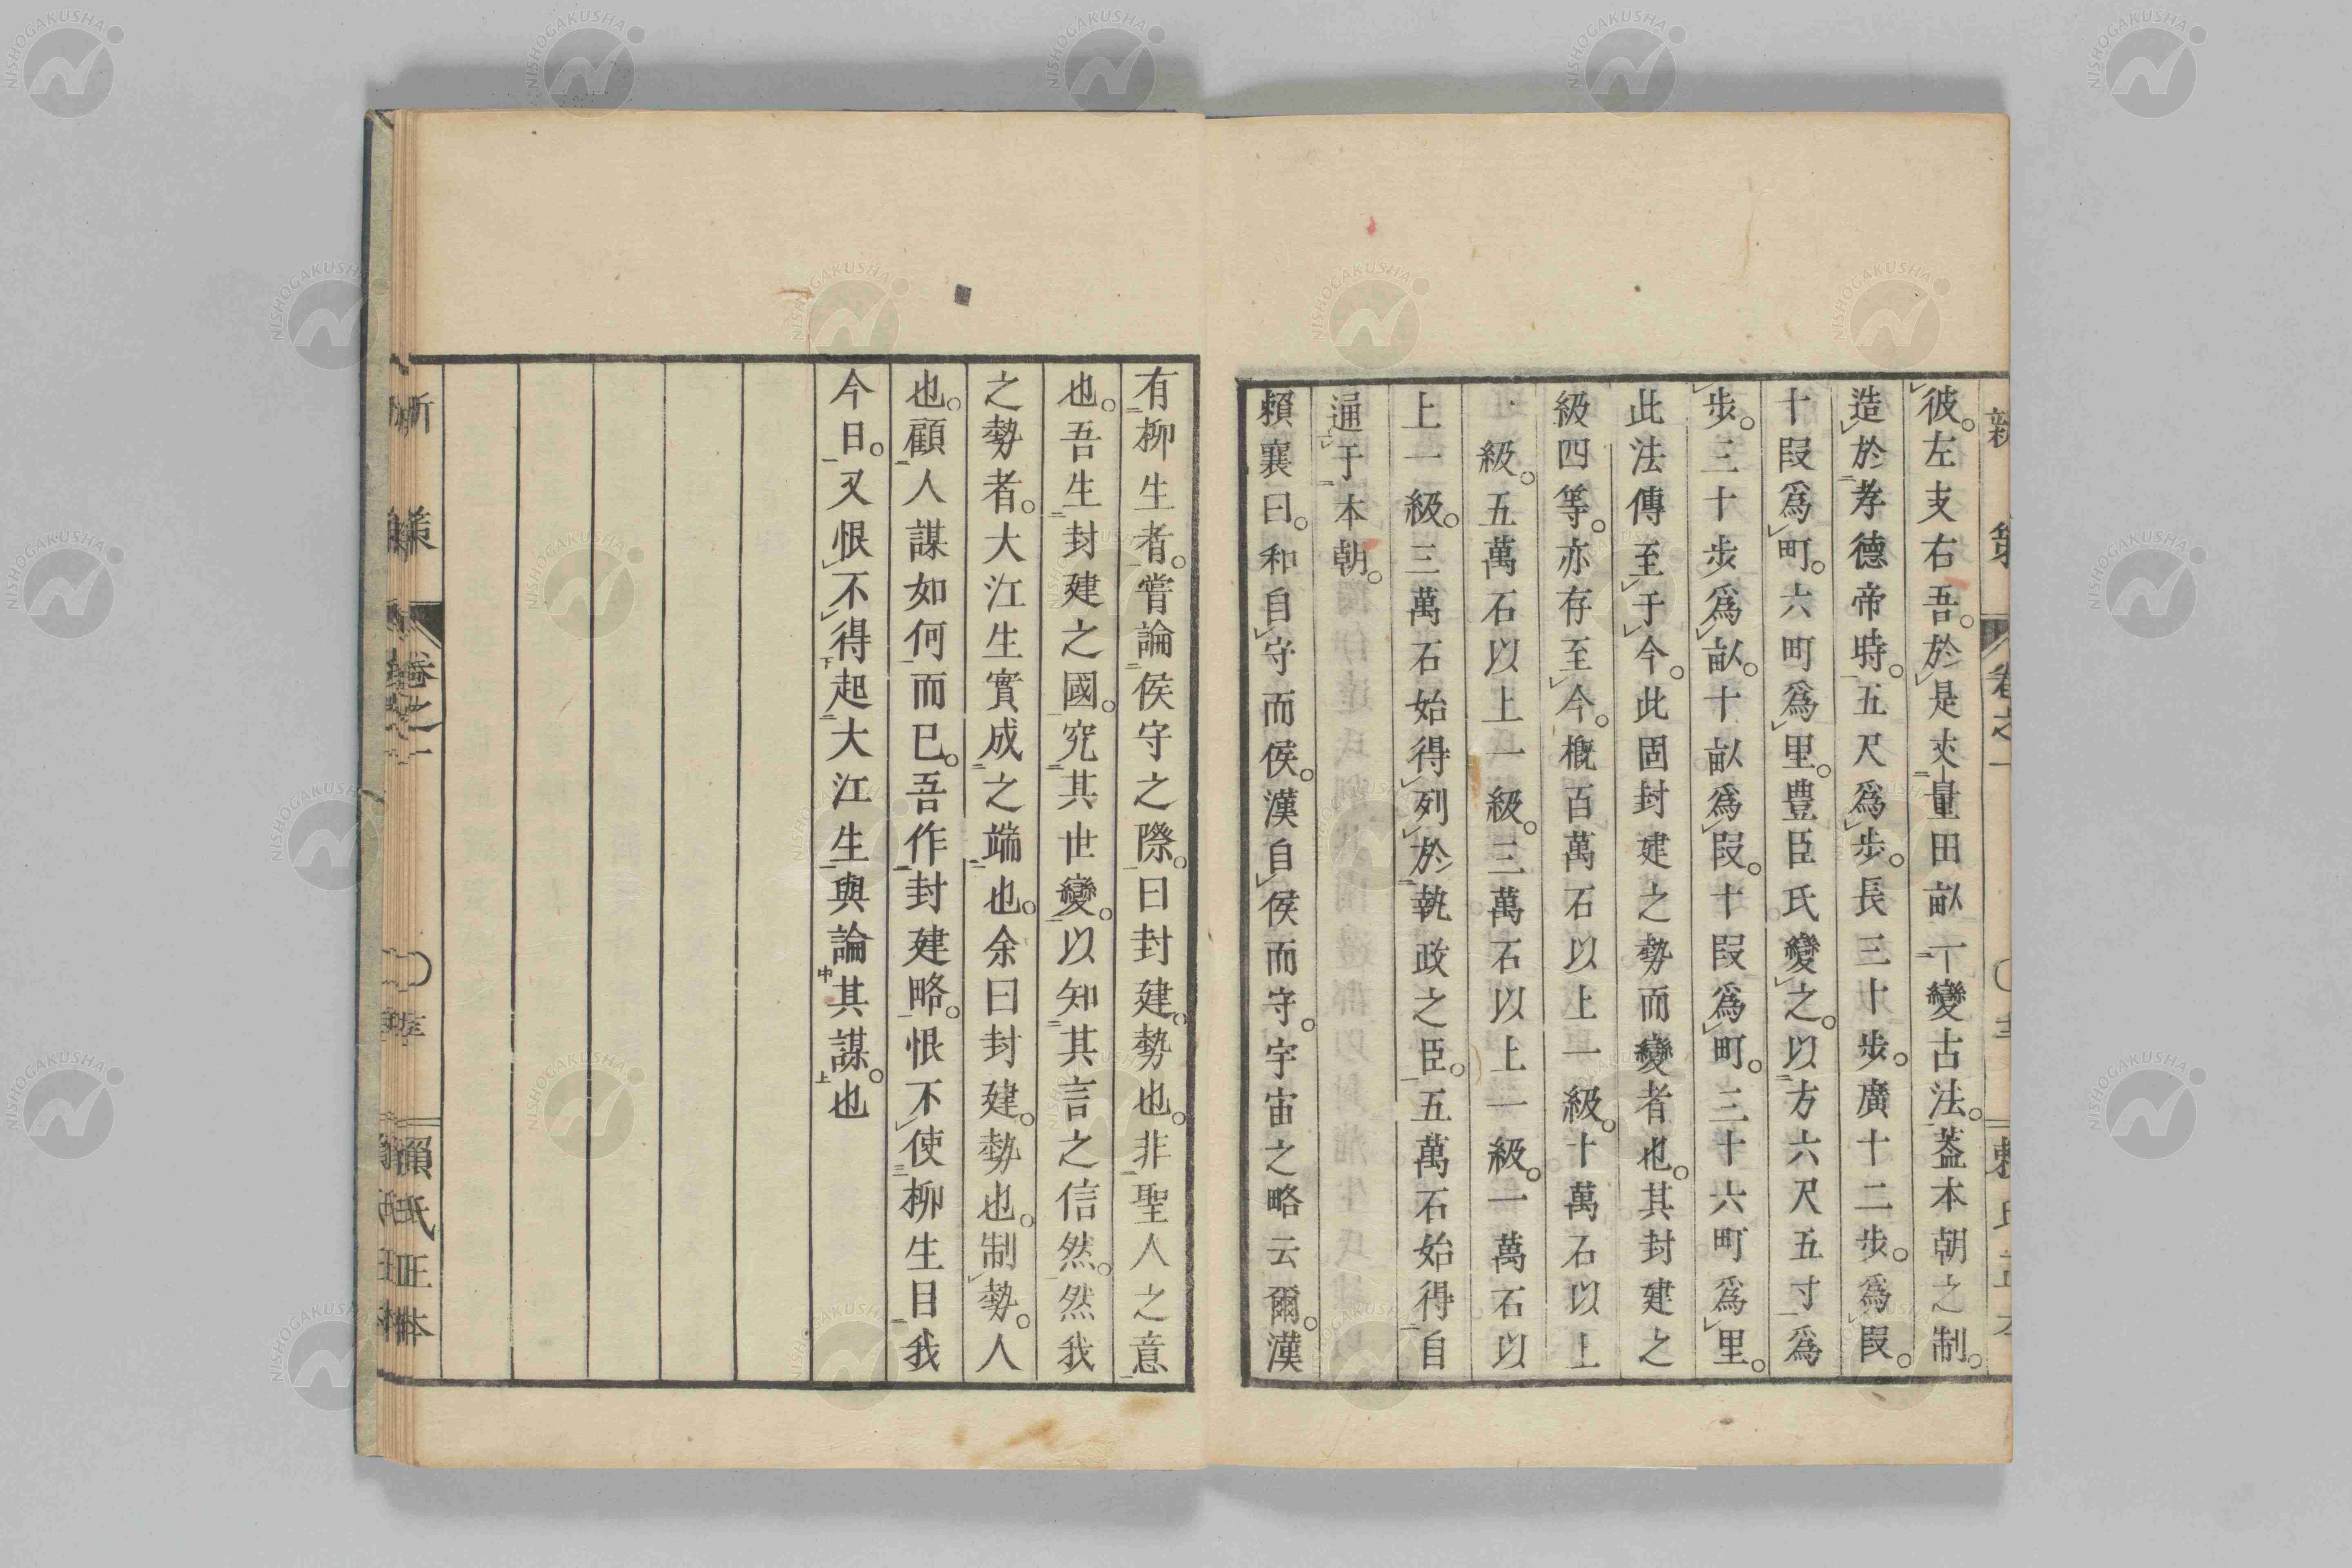 彼。左支右吾。於是丈量田畝一變古法。葢本朝之制。
造於孝德帝時。五尺爲步。長三十步。廣十二步。爲段。
十段爲町。六町爲里。豊臣氏變之。以方六尺五寸爲
步。三十步爲畝。十畝爲段。十段爲町。三十六町爲里。
此法傳至于今。此固封建之勢而變者也。其封建之
級四等。亦存至今。概百萬石以上一級。十萬石以上
一級。五萬石以上一級。三萬石以上一級。一萬石以
上一級。三萬石始得列於執政之臣。五萬石始得自
通于本朝。
賴襄曰。和自守而侯。漢自侯而守。宇宙之略云爾。漢
有柳生者。嘗論侯守之際。曰封建。勢也。非聖人之意
也。吾生封建之國。究其世變。以知其言之信然。然我
之勢者。大江生實成之端也。余曰封建。勢也。制勢。人
也。顧人謀如何而已。吾作封建略。恨不使柳生目我
今日。又恨不得起大江生與論其謀。也
新策
卷之一
賴氏正本
NISHOGAKUSHA